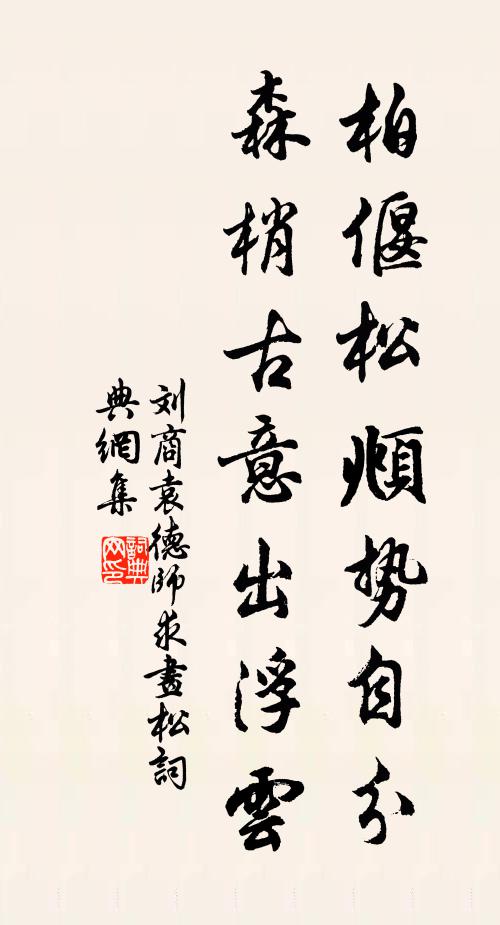 柏偃松頫势自分
森梢古意出浮雲
刘商袁德師求畫松詞
典網集
詞典
网印